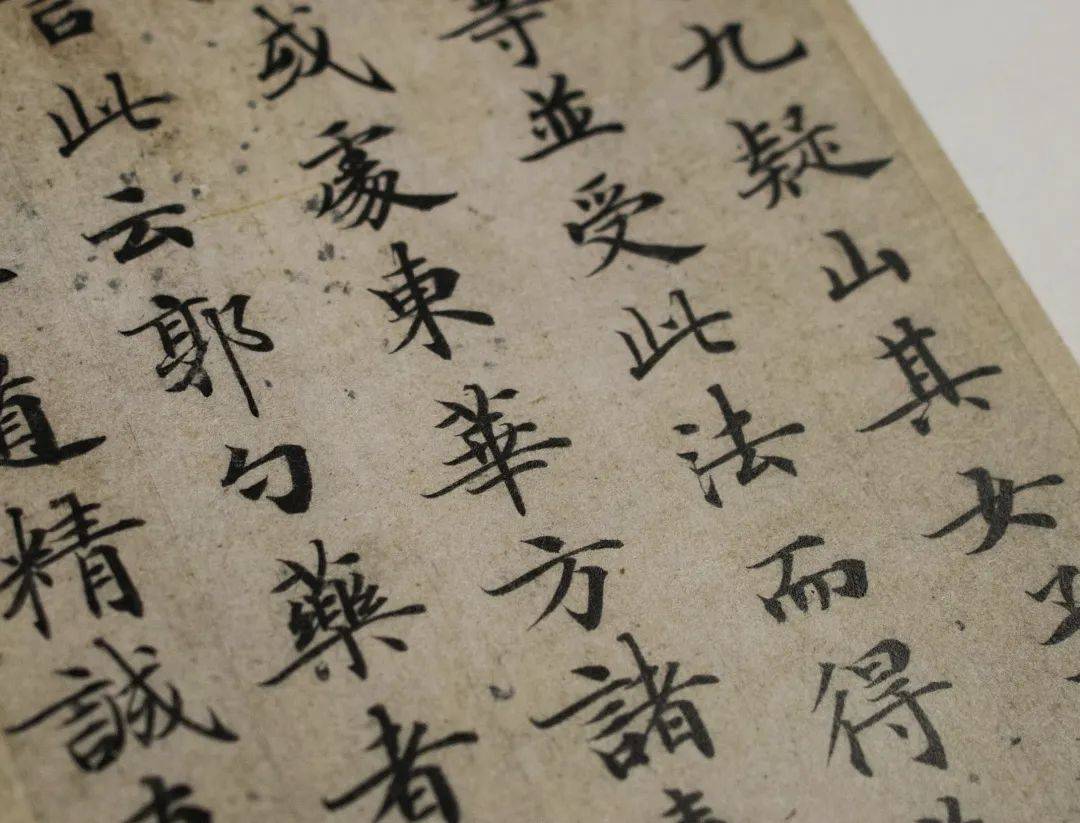 九疑山其女
等並受此法而得
或處東華方諸
此云郭勺藥者
道精誠